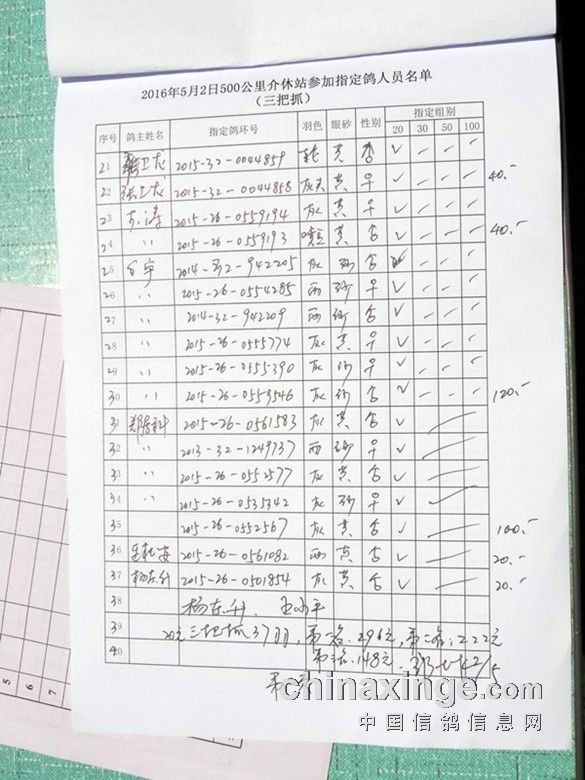 2016年5月2日500公里介休站参加指定鸽人员名单
（三把抓）
序号 鸽主姓名 指定鸽环号 羽色 眼砂 性别 指定组别
20 30 50 100
21 2015-32-0044859 黄 ✓ - - -
22 张卫龙 2015-32-0044858 黄 ♀ ✓ - - - 40.-
23 2015-26-0559194 灰 黄 ♀ ✓ - - -
24 〃 2015-26-0559193 黄 ✓ - - - 40.-
25 2014-32-942205 灰 砂 ✓ - - -
26 〃 2015-26-0554285 雨 砂 ♀ ✓ - - -
27 〃 2014-32-942209 雨 砂 ✓ - - -
28 〃 2015-26-0555774 灰 黄 ♀ ✓ - - -
29 〃 2015-26-0555390 灰 砂 ✓ - - -
30 〃 2015-26-0559546 灰 砂 ✓ - - - 120.-
31 2015-26-0561583 灰 黄 ✓
32 〃 2013-32-1249737 雨 砂 ♀ ✓
33 〃 2015-26-0552577 灰 黄 ✓
34 〃 2015-26-0535342 灰 砂 ♀ ✓
35 2015-26-0552567 灰 黄 ✓ 100.-
36 2015-26-0561082 雨 黄 ✓ 20.-
37 杨东升 2015-26-0501854 灰 黄 ✓ 20.-
38 杨东升
39 20元三把抓37羽，第一名：296元，第二名：222元
40 第三名：148元
chinaxinge.com
中国信鸽信息网